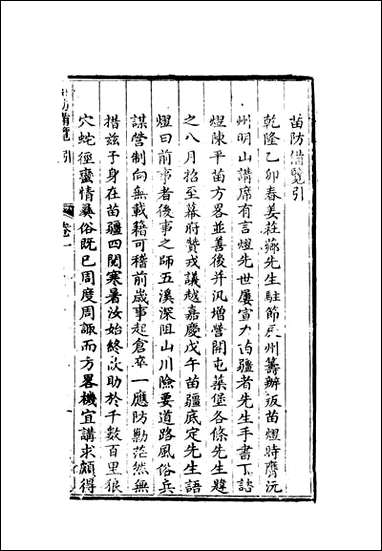 苗防備覽引
乾隆乙卯春姜荘薌先生駐節辰州籌辦叛苗煜時膺沅
州明山講席有言煜先世屢宣力苗疆者先生手書下詰
煜陳平苗方畧並善後并汛增營開屯築堡各條先生韙
之八月招至幕府贊戎議越嘉慶戊午苗疆底定先生語
煜曰前事者後事之師五溪深阻山川險要道路風俗兵
謀營制向無載籍可稽前歲事起倉卒一應防勦茫然無
措兹予身在苗疆四閱寒暑汝始終佽助於千數百里狼
穴蛇徑蠻情彝俗既已周度周諏而方畧機宜講求頗得
防備覽 引 一